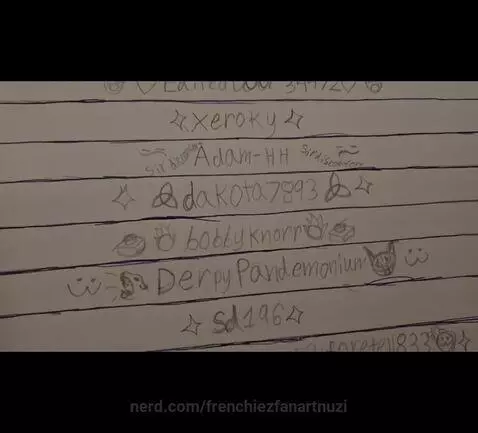 xeroky
Adam-HH
dakota7893
bobbyknorr
DerpyPandemonium
sd196
nerd.com/frenchiezfanartnuzi